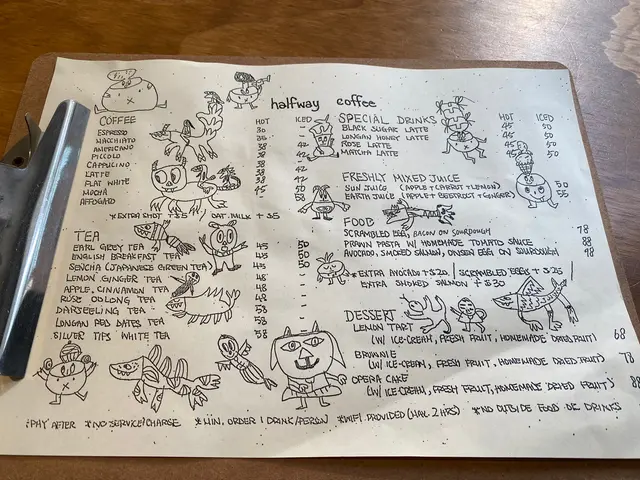 halfway coffee
COFFEE HOT ICED
ESPRESSO 30 -
MACCHIATO 35
AMERICANO 38
PICCOLO 38
CAPPUCCINO 38 42
LATTE 38 42
FLAT WHITE 38
MOCHA 45 50
AFFOGATO 58
*EXTRA SHOT +$5 OAT MILK +$5
TEA
EARL GREY TEA 45 50
ENGLISH BREAKFAST TEA 45 50
SENCHA (JAPANESE GREEN TEA) 45 50
LEMON GINGER TEA 48 -
APPLE CINNAMON TEA 48 -
ROSE OOLONG TEA 48 -
DARJEELING TEA 58 -
LONGAN RED DATES TEA 58 -
SILVER TIPS WHITE TEA 58 -
SPECIAL DRINKS HOT ICED
BLACK SUGAR LATTE 45 50
LONGAN HONEY LATTE 45 50
ROSE LATTE 45 50
MATCHA LATTE 50
FRESHLY MIXED JUICE
SUN JUICE (APPLE+CARROT+LEMON) 50
EARTH JUICE (APPLE+BEETROOT+GINGER) 55
FOOD
SCRAMBLED EGG, BACON ON SOURDOUGH 78
PRAWN PASTA W/ HOMEMADE TOMATO SAUCE 88
AVOCADO, SMOKED SALMON, ONSEN EGG ON SOURDOUGH 98
*EXTRA AVOCADO +$20 / SCRAMBLED EGGS +$25 /
EXTRA SMOKED SALMON +$30
DESSERT
LEMON TART 68
(W/ ICE-CREAM, FRESH FRUIT, HOMEMADE DRIED FRUIT)
BROWNIE 78
(W/ ICE-CREAM, FRESH FRUIT, HOMEMADE DRIED FRUIT)
OPERA CAKE 88
(W/ ICE-CREAM, FRESH FRUIT, HOMEMADE DRIED FRUIT)
*PAY AFTER *NO SERVICE CHARGE *MIN. ORDER 1 DRINK/PERSON *WIFI PROVIDED (MAX. 2 HRS) *NO OUTSIDE FOOD OR DRINKS